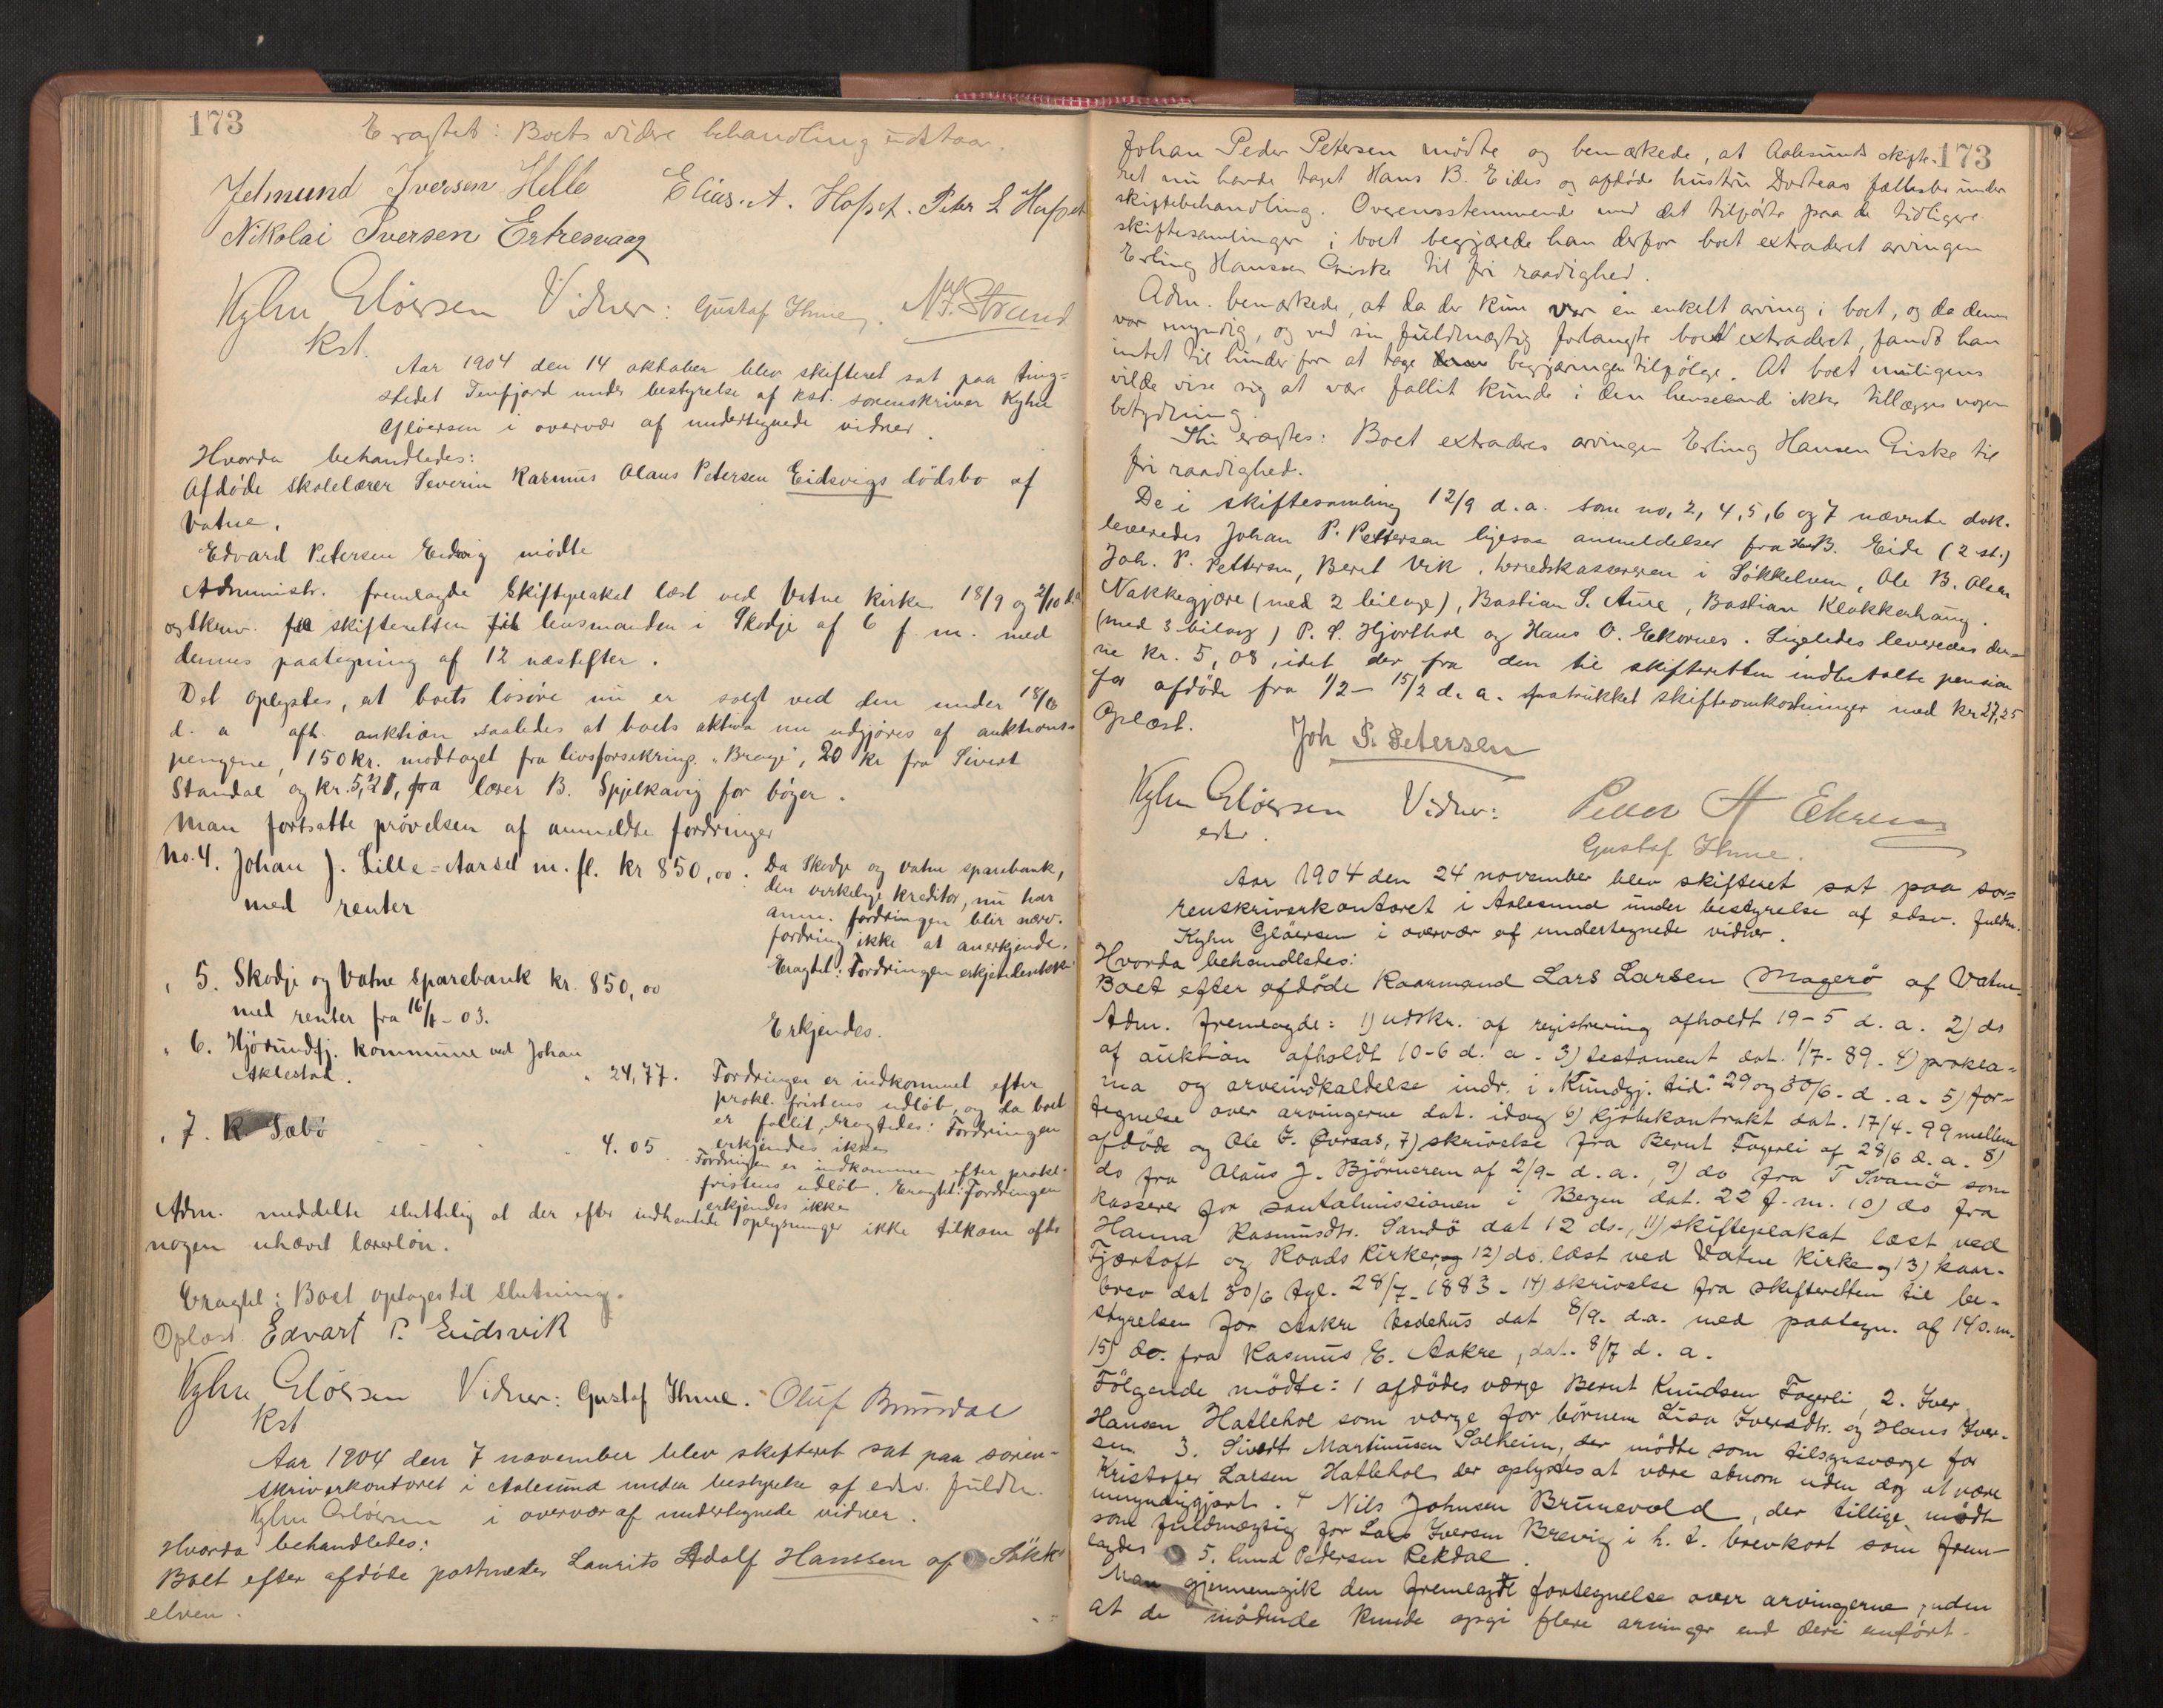 173
Eragtet: Boets vidre behandling udstaar.
Jetmund Iversen Helle Elias. A. Hofset. Peter L Hofset
Nikolai Iversen Ertresvaag
Kyhn Gløersen Vidner: Gustaf Thune. N. F. Strand
kst.
Aar 1904 den 14 oktober blev skifteret sat paa ting=
stedet Tenfjord under bestyrelse af kst. sorenskriver Kyhn
Gløersen i overvær af undertegnede vidner.
Hvorda behandledes:
Afdøde skolelærer Severin Rasmus Olaus Petersen Eidsvigs dödsbo af
Vatne.
Edvard Petersen Eidsvig mödte
Administr. fremlagde skifteplakat læst ved Vatne kirke 18/9 og 2/10 d.a
og skriv. fra skifteretten til lensmanden i Skodje af 6 f. m. med
dennes paategning af 12 næstefter.
Det oplystes, at boets lösöre nu er solgt ved den under 18/6
d. a afh. auktion saaledes at boets aktiva nu udgjöres af auktions-
pengene, 150 kr. modtaget fra livsforsikring. "Brage", 20 kr fra Sivert
Standal og kr. 5,21, fra lærer B. Spjelkavig for böger.
Man fortsatte prövelsen af anmeldte fordringer
No. 4. Johan J. Lille-Aarset m. fl. kr 850,00. Da Skodje og Vatne sparebank,
med renter den virkelige kreditor, nu har
anm. fordringen blir nærv.
fordring ikke at anerkjende.
Eragtet: Fordringen erkjendes ikke
" 5. Skodje og Vatne sparebank kr. 850,00
med renter fra 16/4 - 03. Erkjendes.
" 6. Hjörundfj. kommune ved Johan
Aklestad. " 24,77. Fordringen er indkommet efter
prokl. fristens udløb, og da boet
er fallit, eragtedes: Fordringen
erkjendes ikke
" 7. K Sæbö 4.05 Fordringen er indkommen efter prokl.
fristens udløb. Eragtet: Fordringen
erkjendes ikke
Adm. meddelte sluttelig at der efter indhentede oplysninger ikke tilkom afdö
nogen uhævet lærerlön.
Eragtet: Boet optages til slutning.
Oplæst. Edvart P. Eidsvik
Kyhn Gløersen Vidner: Gustaf Thune. Oluf Brunsdal
kst
Aar 1904 den 7 november blev skifteret sat paa soren-
skriverkontoret i Aalesund under bestyrelse af edsv. fuldm.
Kyhn Gløersen i overvær af undertegnede vidner.
Hvorda behandledes:
Boet efter afdöde postmester Laurits Adolf Hanssen af Søkk
elven.
173
Johan Peder Petersen mödte og bemærkede, at Aalesunds skifte-
ret nu havde taget Hans B. Eides og afdöde hustru Dorteas fællesbo under
skiftebehandling. Overensstemmende med det tilförte paa de tidligere
skiftesamlinger i boet begjærede han derfor boet extraderet arvingen
Erling Hanssen Giske til fri raadighed.
Adm. bemærkede, at da der kun var en enkelt arving i boet, og da denne
var myndig, og ved sin fuldmægtig forlangte boet extraderet, fandt han
intet til hinder for at tage begjæringen tilfölge. At boet muligens
vilde vise sig at være fallit kunde i den henseende ikke tillægges nogen
betydning.
Thi eragtes: Boet extraderes arvingen Erling Hansen Giske til
fri raadighed.
De i skiftesamling 12/9 d.a. som no, 2, 4, 5, 6 og 7 nævnte dok.
leveredes Johan P. Pettersen ligesaa anmeldelser fra Hans B. Eide (2 st.)
Joh. P. Pettersen, Beret Vik, herredskassereren i Sökkelven, Ole B. Olsen
Nakkegjære (med 2 bilage), Bastian S. Aure, Bastian Klokkerhaug.
(med 3 bilag) P. S. Hjorthol og Hans O. Ekornes. Ligeledes leveredes den-
ne kr. 5,08, idet der fra den til skifteretten indbetalte pension
for afdöde fra 1/2 - 15/2 d. a. fratrukket skifteomkostninger med kr 27,25
Oplæst.
Joh P. Petersen
Kyhn Gløersen Vidner: Peder A Ekrem
edsv. Gustaf Thune.
Aar 1904 den 24 november blev skifteret sat paa so=
renskriverkontoret i Aalesund under bestyrelse af edsv. fuldm.
Kyhn Gløersen i overvær af undertegnede vidner.
Hvorda behandledes:
Boet efter afdöde kaarmand Lars Larsen Magerö af Vatne.
Adm. fremlagde: 1) udskr. af registrering afholdt 19-5 d. a. 2) do
af auktion afholdt 10-6 d. a. 3) testament dat. 1/7-89. 4) prokla-
ma og arveindkaldelse indr. i "Kundgj. tid." 29 og 30/6 d. a. 5) for-
tegnelse over arvingerne dat. idag 6) kjöbekontrakt dat. 17/4-99 mellem
afdöde og Ole J. Övreas, 7) skrivelse fra Bernt Fagerli af 28/6 d. a. 8)
do fra Olaus J. Björnerem af 2/9 d. a., 9) do fra T Svanö som
kasserer for santalmissionen i Bergen dat. 22 f. m. 10) do fra
Hanna Rasmusdtr. Sandö dat 12 ds., 11) skifteplakat læst ved
Fjærtoft og Roads kirker, og 12) do. læst ved Vatne kirke og 13) kaar-
brev dat 30/6 tgl. 28/7-1883. 14) skrivelse fra skifteretten til be-
styrelsen for Aakre bedehus dat 8/9 d.a. med paategn. af 14 s. m.
15) do. fra Rasmus E. Aakre, dat. 8/7 d. a.
Fölgende mödte: 1 afdödes værge Bernt Knudsen Fagerli, 2. Iver
Hansen Hatlehol som værge for börnene Lisa Iversdtr. og Hans Iver-
sen 3. Sivert Martinusen Solheim, der mödte som tilsynsværge for
Kristofer Larsen Hatlehol der oplystes at være abnorm uden dog at være
umyndiggjort. 4 Nils Johnsen Brunevold, der tillige mödte
som fuldmægtig for Lars Iversen Brevig i h. t. brevkort som frem-
lagdes 5. Lund Pedersen Rekdal.
Man gjennemgik den fremlagte fortegnelse over arvingerne, uden
at de mödende kunde opgi flere arvinger end deri anfört.